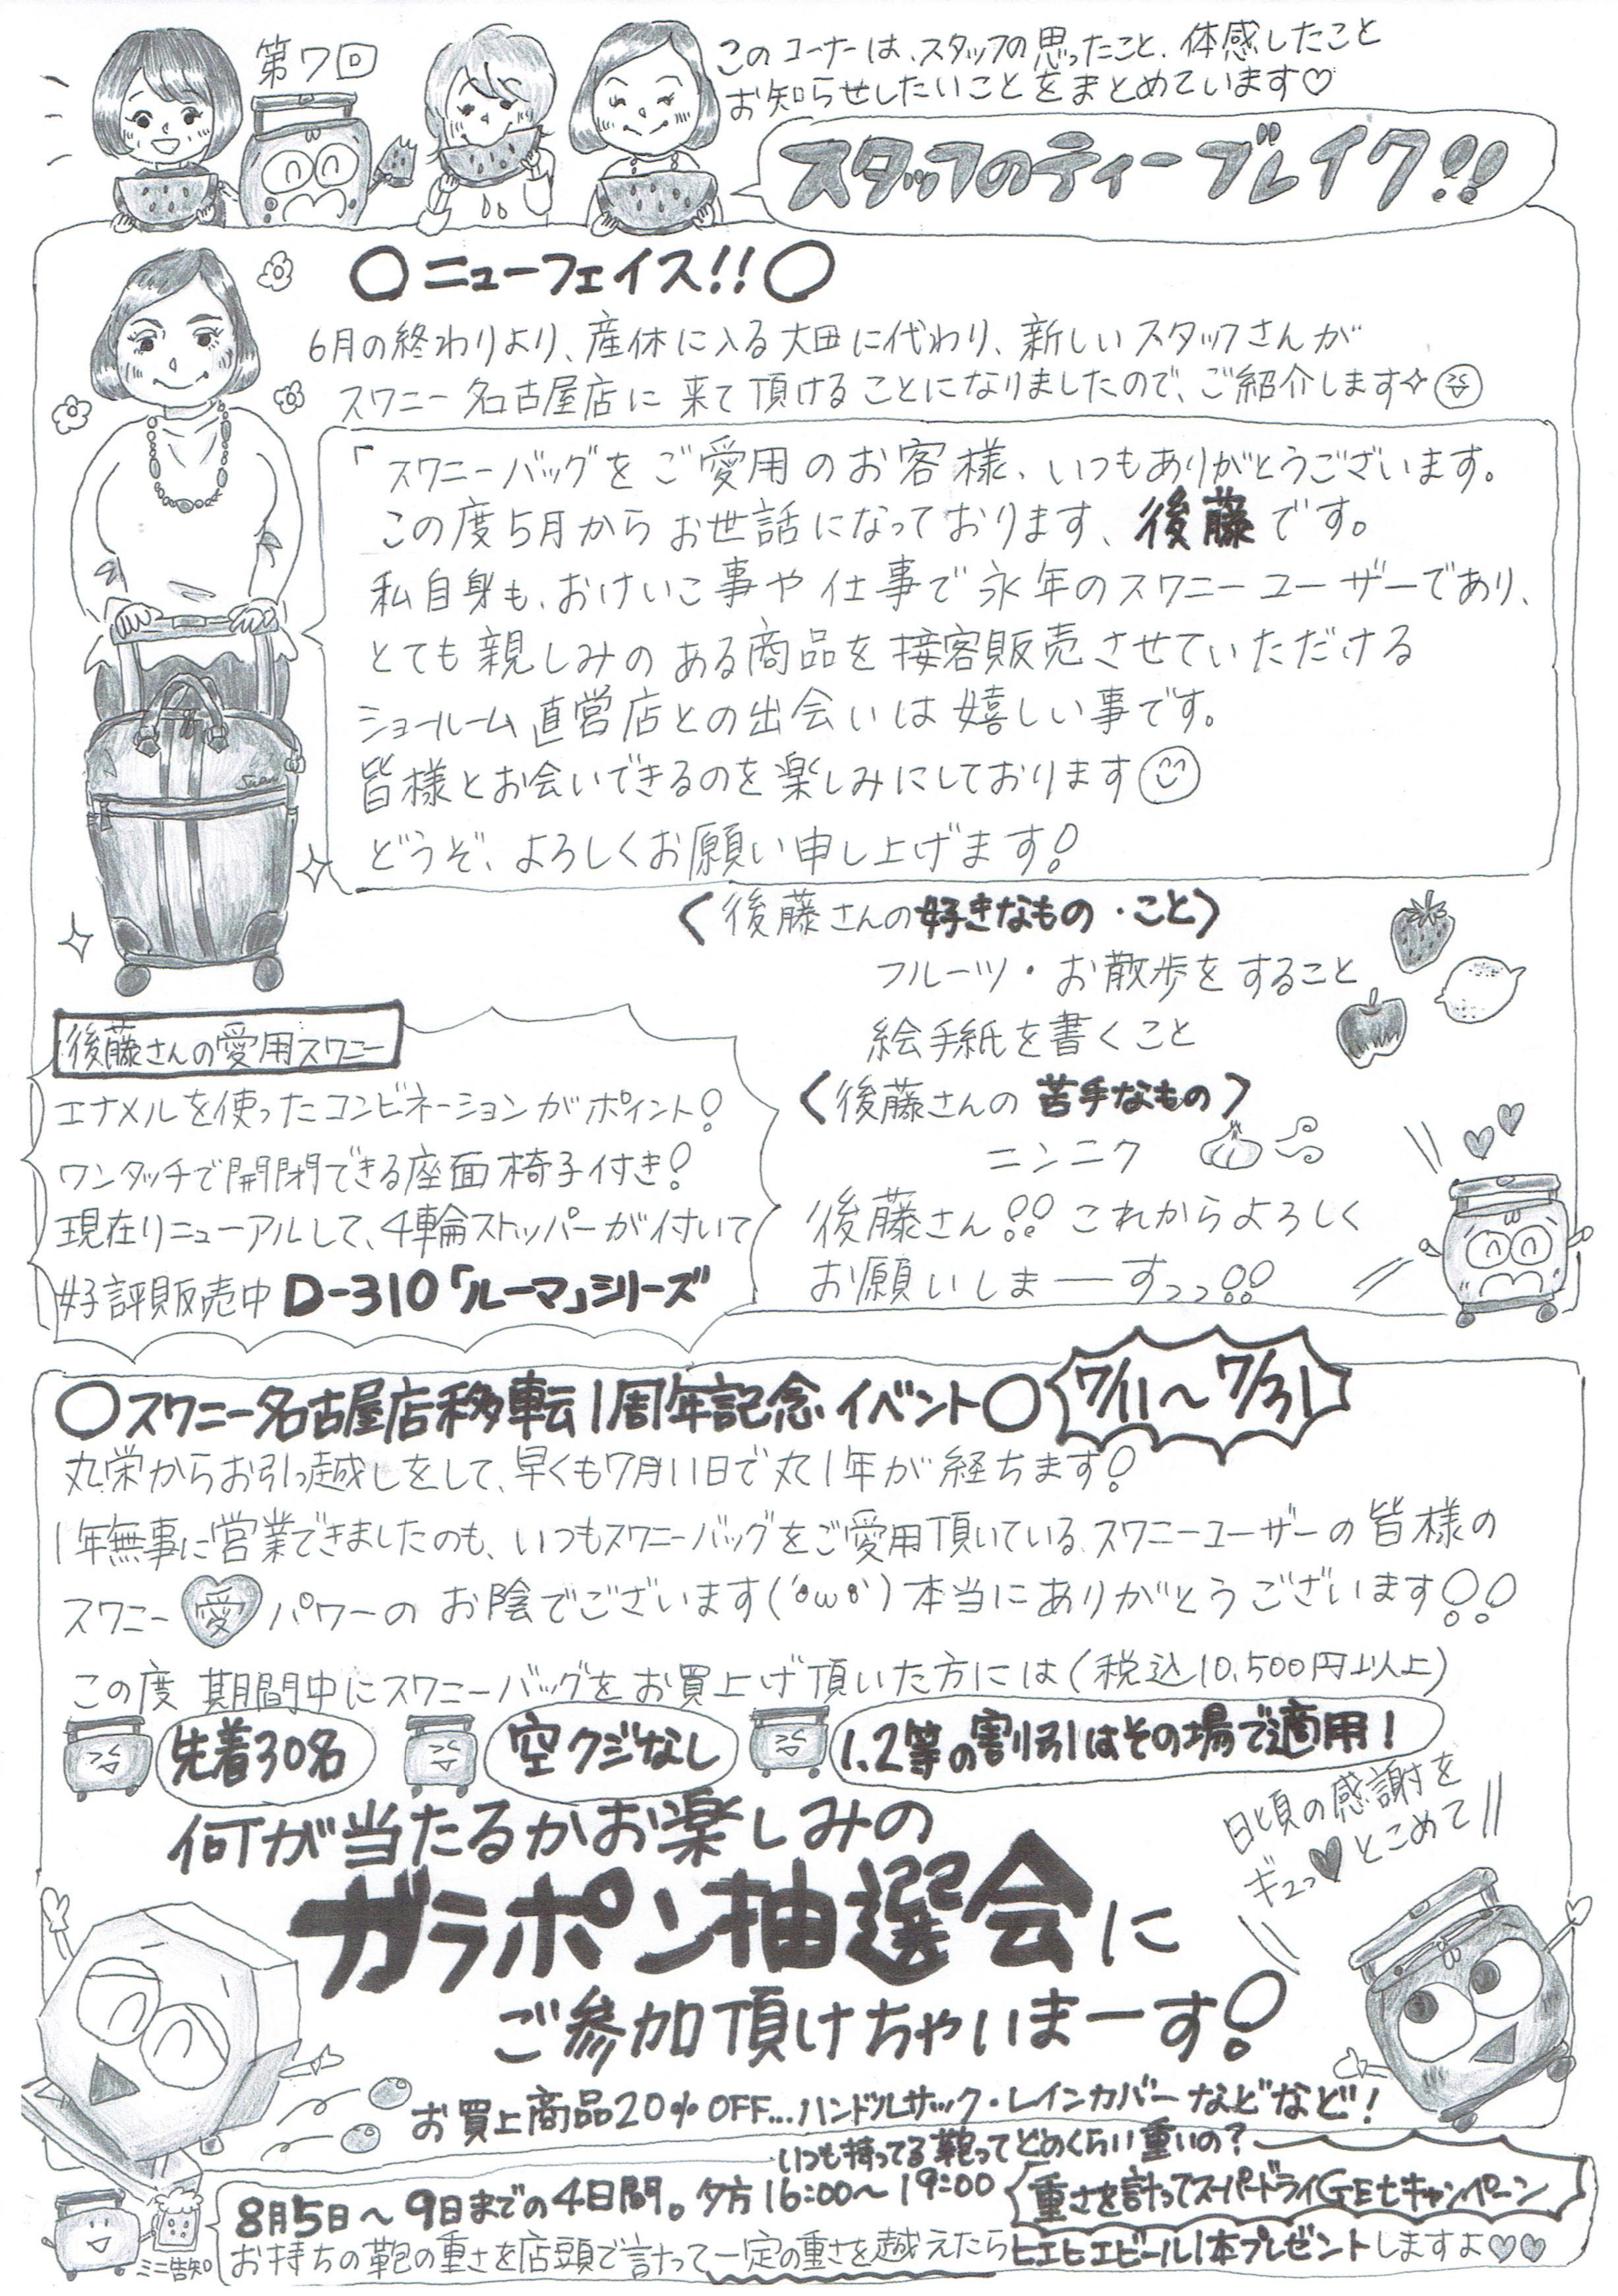 第7回
このコーナーは、スタッフの思ったこと、体感したこと
お知らせしたいことをまとめています♡
スタッフのティーブレイク!!
○ニューフェイス!!○
6月の終わりより、産休に入る大田に代わり、新しいスタッフさんが
スワニー名古屋店に来て頂けることになりましたので、ご紹介します✧
「スワニーバッグをご愛用のお客様、いつもありがとうございます。
この度5月からお世話になっております、後藤です。
私自身も、おけいこ事や仕事で永年のスワニーユーザーであり、
とても親しみのある商品を接客販売させていただける
ショールーム直営店との出会いは嬉しい事です。
皆様とお会いできるのを楽しみにしております
どうぞ、よろしくお願い申し上げます!
〈後藤さんの好きなもの・こと〉
フルーツ・お散歩をすること
絵手紙を書くこと
〈後藤さんの苦手なもの〉
ニンニク
後藤さん!!これからよろしく
お願いしまーすっっ!!
後藤さんの愛用スワニー
エナメルを使ったコンビネーションがポイント!
ワンタッチで開閉できる座面椅子付き!
現在リニューアルして、4輪ストッパーが付いて
好評販売中D-310「ルーマ」シリーズ
○スワニー名古屋店移転1周年記念イベント○
7/11〜7/31
丸栄からお引っ越しをして、早くも7月11日で丸1年が経ちます!
1年無事に営業できましたのも、いつもスワニーバッグをご愛用頂いている、スワニーユーザーの皆様の
スワニー愛パワーのお陰でございます(´•ω•`)本当にありがとうございます!!
この度期間中にスワニーバッグをお買上げ頂いた方には(税込10,500円以上)
先着30名
空クジなし
1、2等の割引はその場で適用!
何が当たるかお楽しみの
ガラポン抽選会に
ご参加頂けちゃいまーす!
日頃の感謝を
ギュっ♥とこめて
お買上商品20%OFF...ハンドルサック・レインカバーなどなど!
いつも持ってる鞄ってどのくらい重いの?
8月5日〜9日までの4日間。夕方16:00〜19:00
重さを計ってスーパードライGEtキャンペーン
お持ちの鞄の重さを店頭で計って一定の重さを越えたらヒエヒエビール1本プレゼントしますよ♡♡
ミニ告知